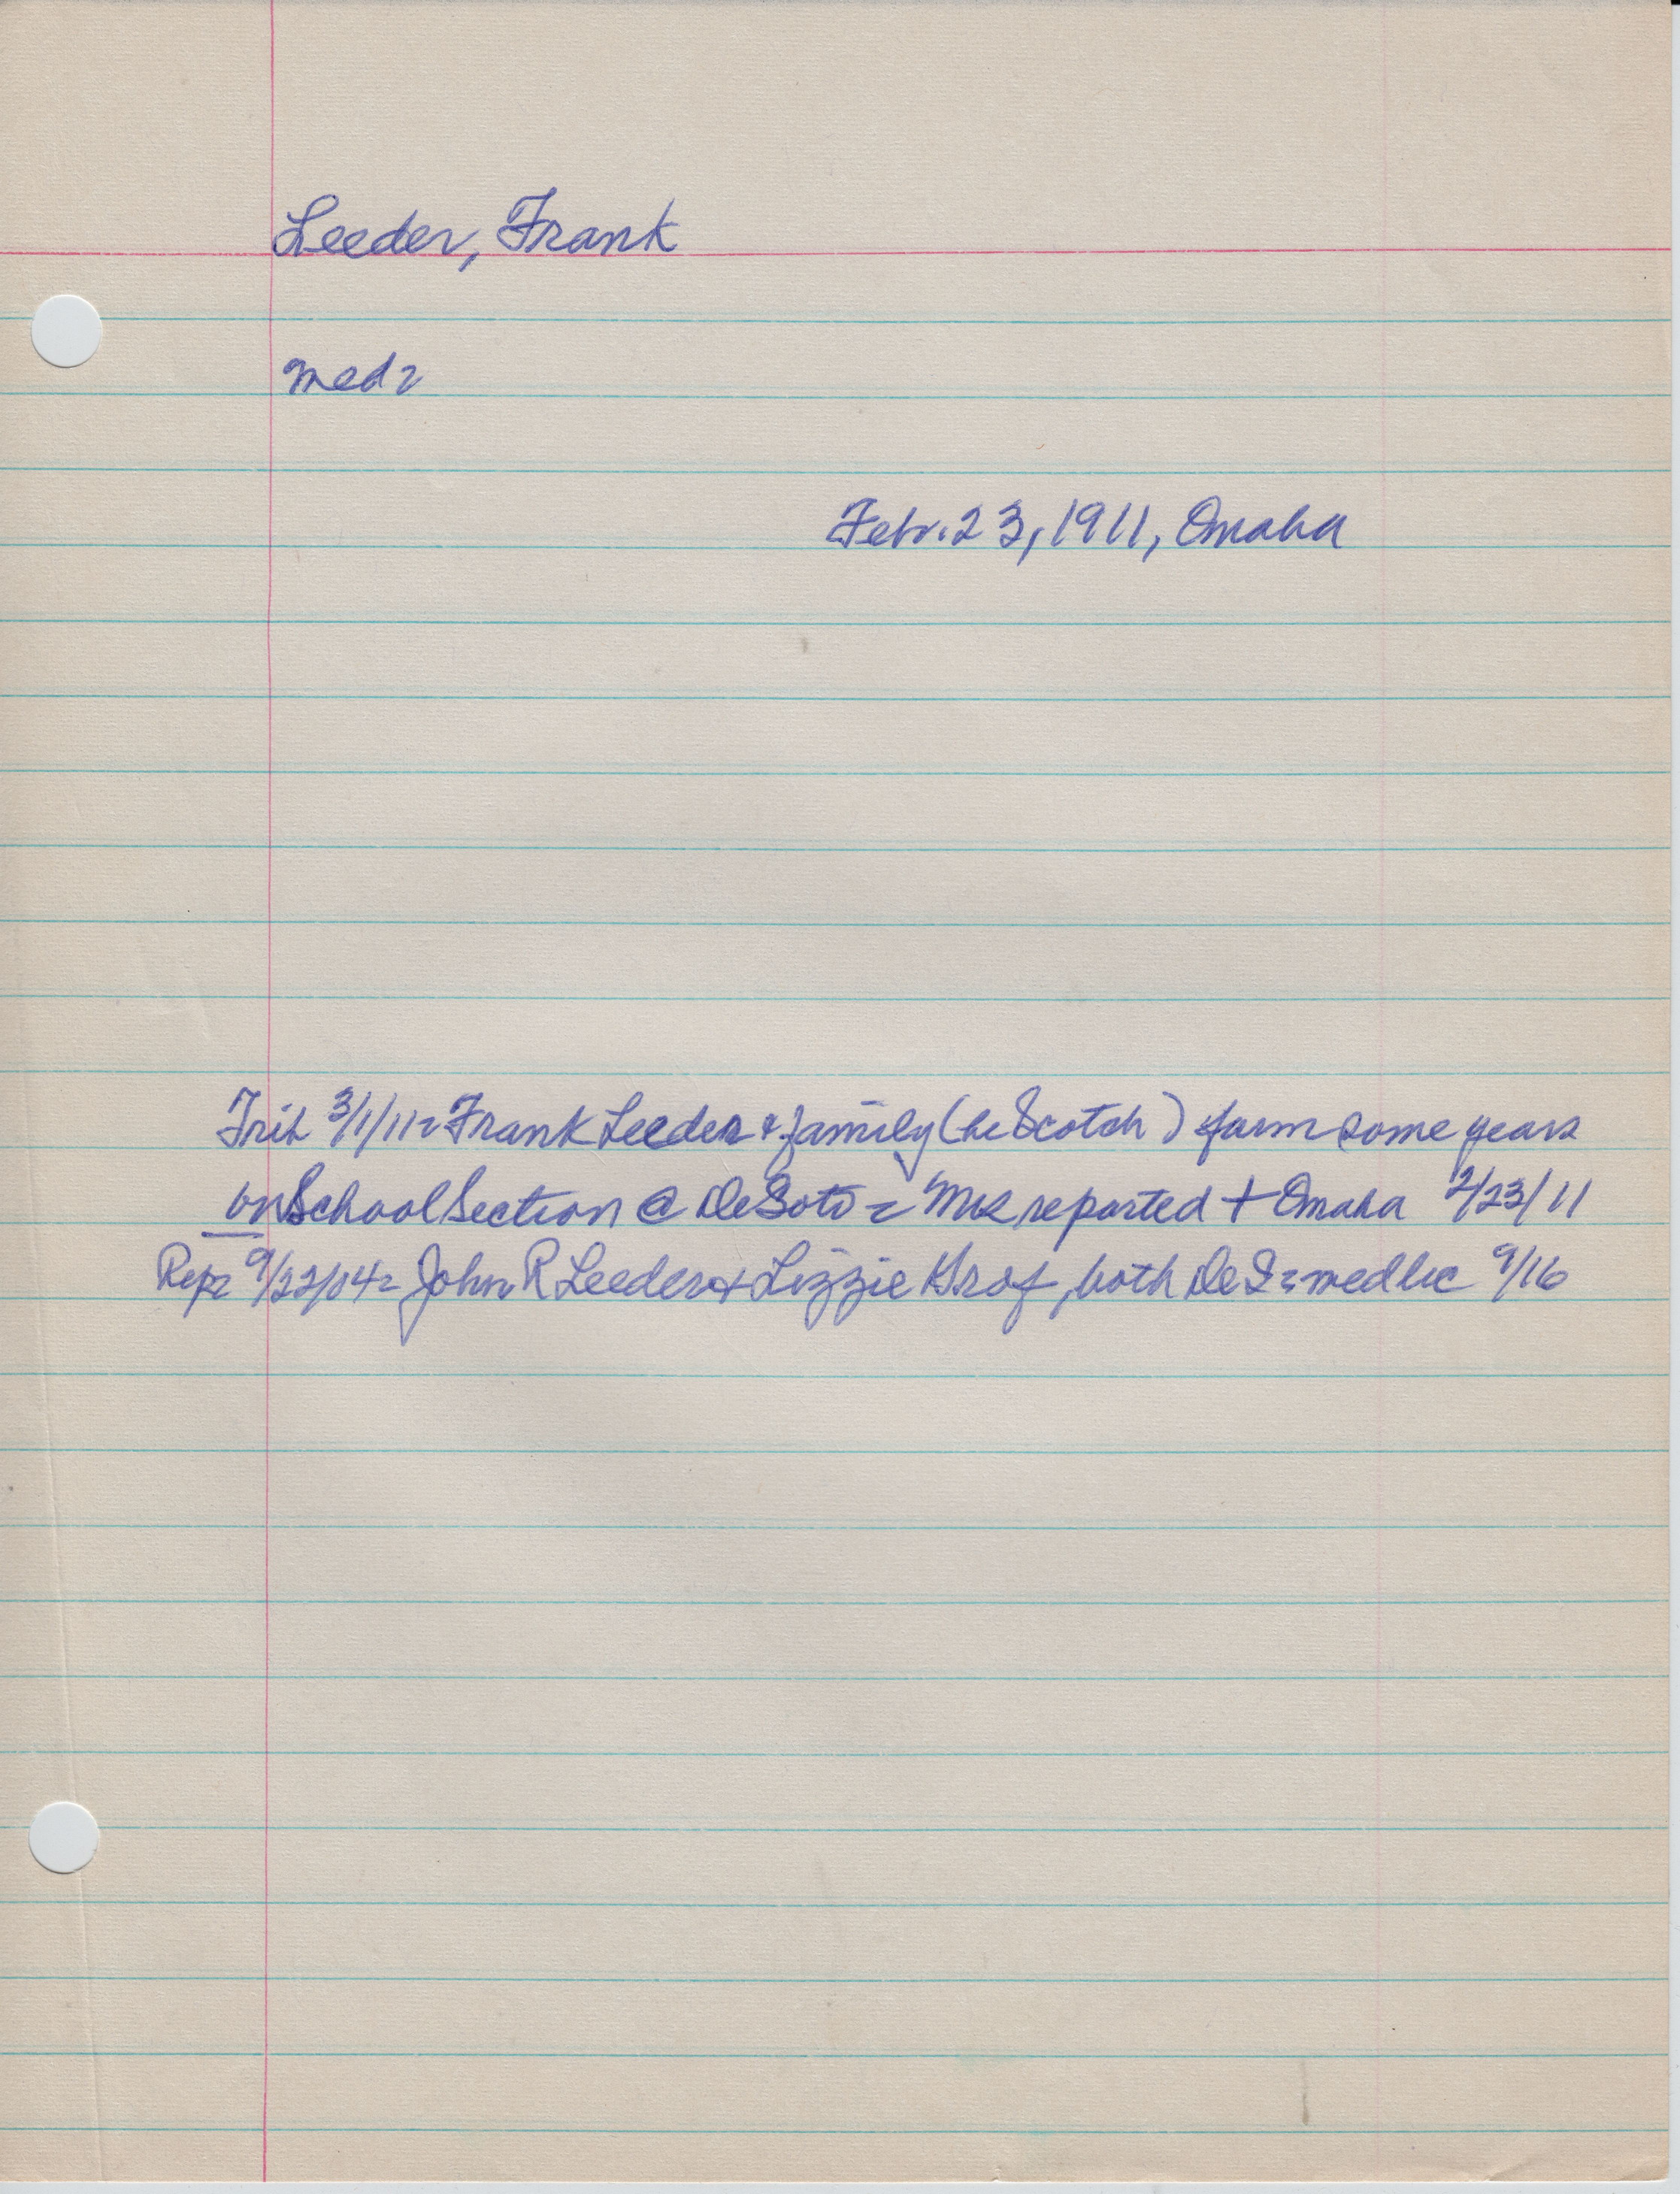 Leeder, Frank
med=
Febr. 23, 1911, Omaha
Trib 3/1/11= Frank Leeder & family (he Scotch) farm some years
on School Section @ DeSoto = Mrs reported + Omaha 2/23/11
Rep= 9/22/04= John R Leeder & Lizzie Grof, both DeS= med lic 9/16